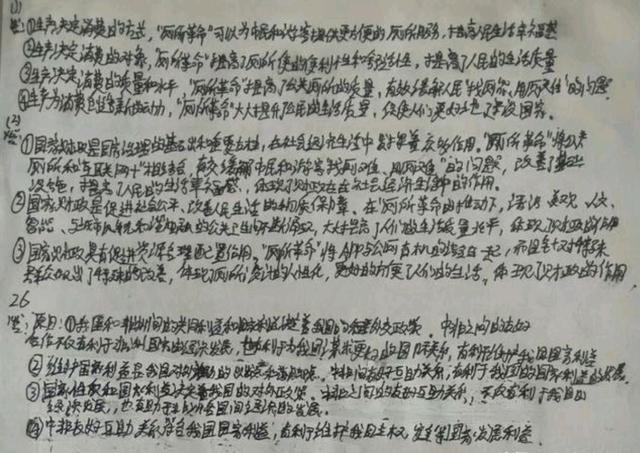 (1)
答:①生产决定消费的方式,"厕所革命"可以为市民和游客提供更方便的厕所服务,提高民生活幸福感
②生产决定消费的对象,"厕所革命"提高了厕所使的便利性和舒适性,提高了人民的生活质量
③生产决定消费的质量和水平,"厕所革命"提高了公共厕所的质量,有效缓解人民"找厕难、用厕难"的问题
④生产为消费创造新的动力,"厕所革命"大大提升了民的生活质量,促使人们更好地了建设国家。
(2)
答:①国家财政是国家治理的基础和重要支柱,在社会经济生活中具有重要的作用。"厕所革命"将公共
厕所和"互联网+"相结合,有效缓解市民和游客找厕难、用厕难"的问题,改善了基础
设施,提高了人民的生活幸福感,体现了财政在社会经济生活中的作用。
②国家财政是促进社会公平、改善人民生活的物质保障。在"厕所革命的推动下,
大大提高了人们的生活质量水平,体现了财政的作用
③国家财政具有促进资源合理配置作用。"厕所革命"将APP与公网有机的结合在一起,而且针对特殊
群众做出了特殊的改善,体现厕所设计的人性化,更好的方便了人们的生活,体现了财政的作用
26
答:原因:①我国和非洲间的共同利益和 我国的 外交政策。中非之间的友好
合作不仅有利于 国家的经济发展,也有利于为我国谋求更好的国际关系,有利于维护我国国家利益
②维护国家利益是我国对外活动的出发点和落脚点。中非间友好互助关系,有利于我国的国家利益的发展。
③国家性质和国家利益决定着我国的对外政策。中非之间的友好互助关系,不仅有利于我国的
经济发展,也有助于非洲各国间经济的发展。
④中非友好互助关系符合我国国家利益,有利于维护我国主权、安全和国家发展利益.